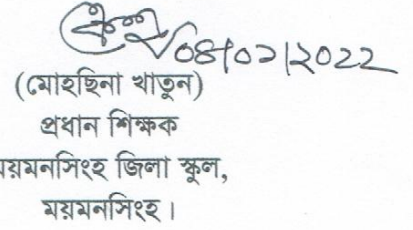 ০৪/০১/২০২২
(মোহছিনা খাতুন)
প্রধান শিক্ষক
ময়মনসিংহ জিলা স্কুল,
ময়মনসিংহ।